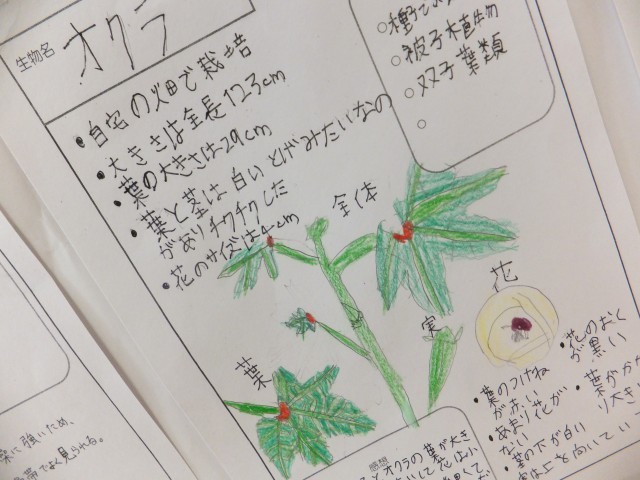 生物名
オクラ
・自宅の畑で栽培
・大きさは全長123cm
・葉の大きさは29cm
・葉と茎は白いとげみたいなの
がありチクチクした
・花のサイズは4cm
○種子
○被子植物
○双子葉類
○
全体
花
実
葉
・花のおく
が黒い
・葉のつけね
が赤い
・あまり花が
ない
・葉がかな
り大き
・葉の下が白い
上を向いてい
感想
オクラの葉が大き
いして花は小
に強いため、
帯でよく見られる。